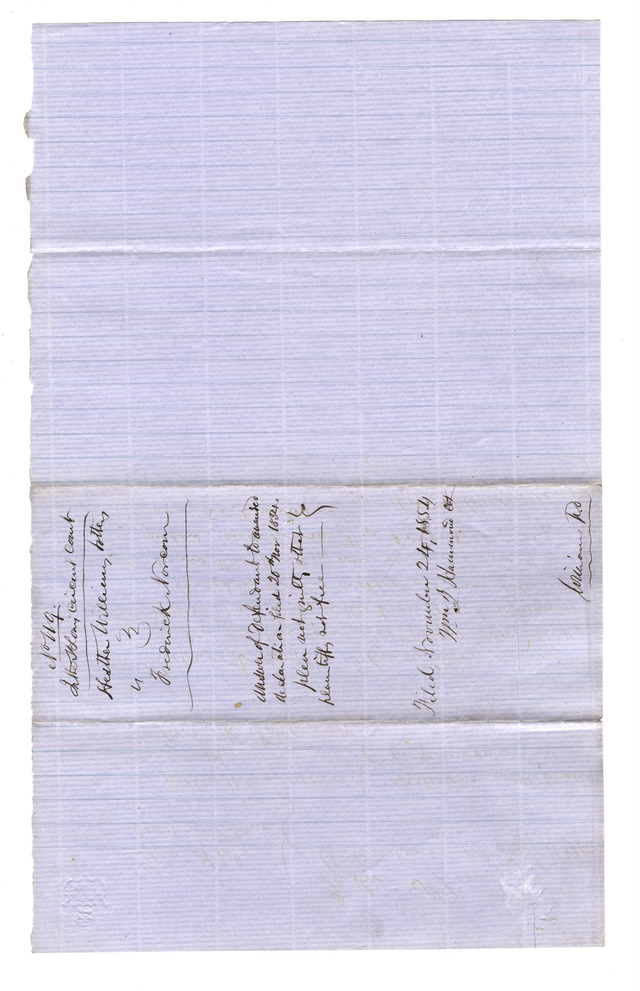 No 119.
In St Louis circuit court
Heather Williams, & others
vs
Frederick Norcom
Answer of Defendant to amended
declaration filed 20 Nov 1854.
plea not guilty & that
plaintiffs not free
Filed, November 24, 1854
Wm J Hammond Clk
Williams